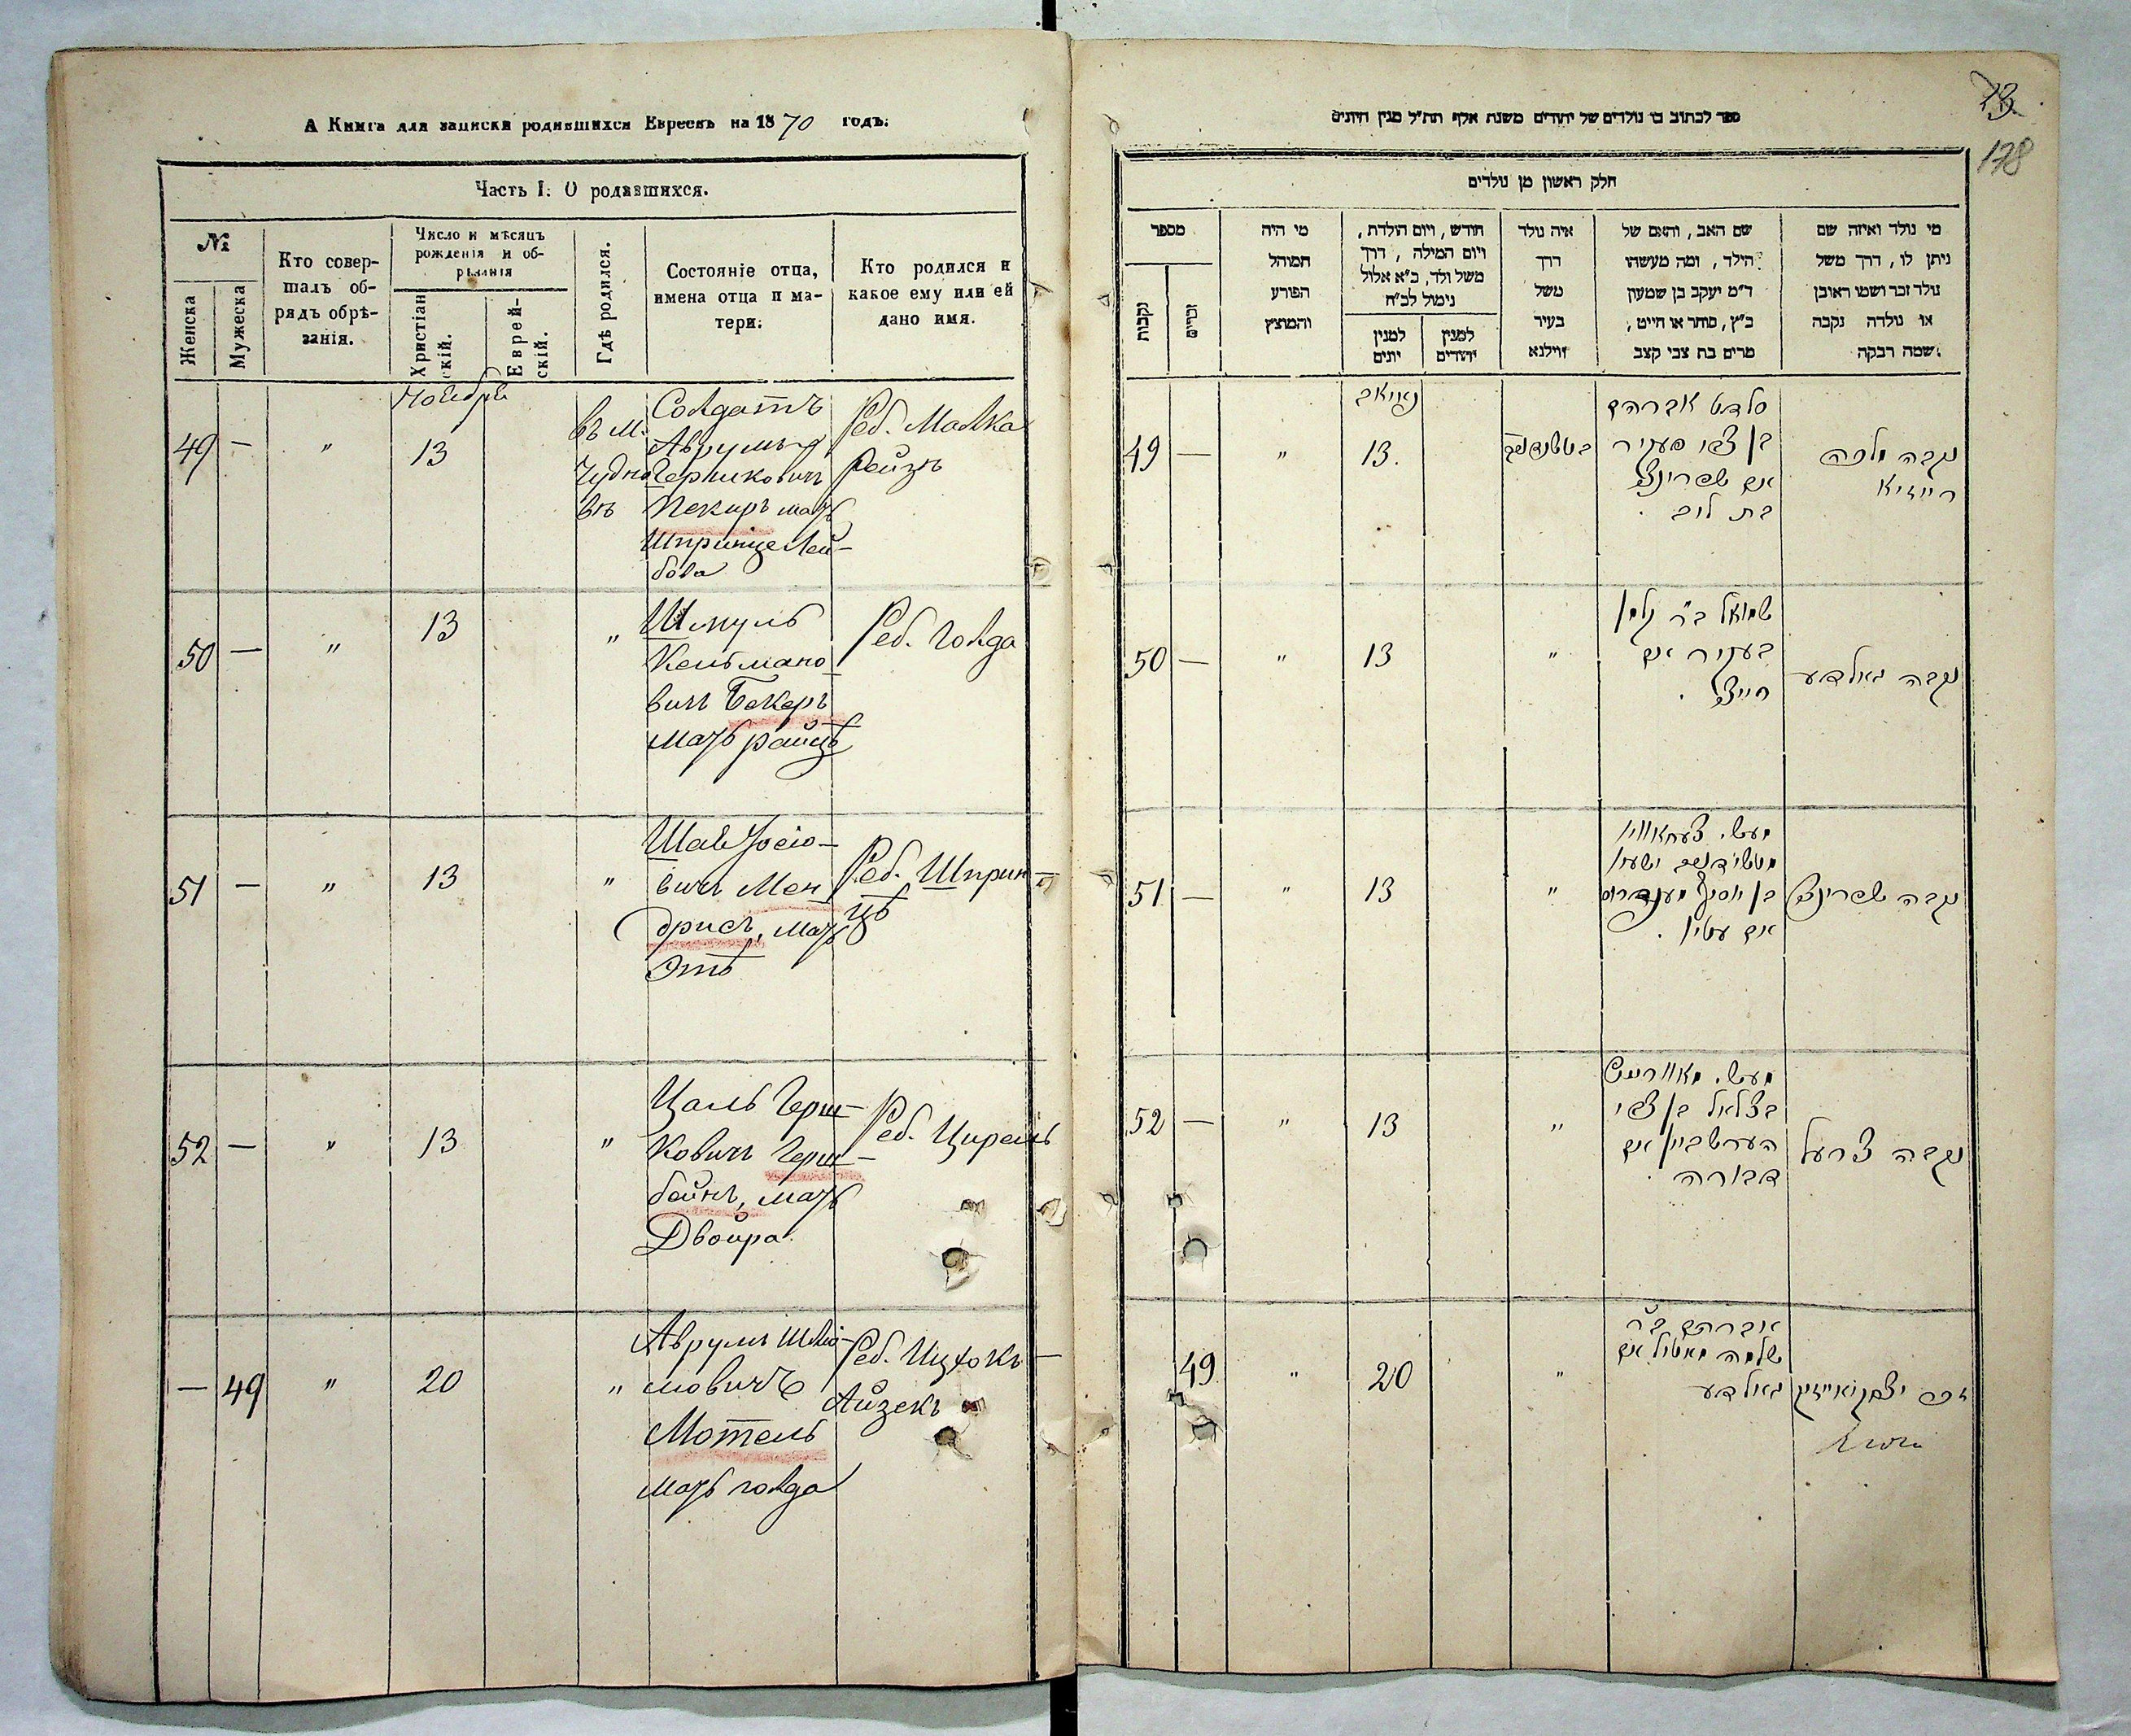 А Книга для записки родившихся Евреевъ на 1870 годъ.
Часть I. О родившихся.
№
Женска
Мужеска
Кто совер-
шалъ об-
рядъ обрѣ-
занія.
Число и мѣсяцъ
рожденія и об-
рѣзанія
Христіан
скій.
Еврей-
скій.
Гдѣ родился.
Состояніе отца,
имена отца и ма-
тери.
Кто родился и
какое ему или ей
дано имя.
Ноября
49 — " 13
въ м.
Чудно
въ
Солдатъ
Аврумъ
Гершковичъ
Пекиръ мать
Шпринце Лей-
бова
Реб. Малка
Рейзя
50 — " 13 "
Шмуль
Кельмано
вичъ Бекеръ
мать
Реб. Голда
51 — " 13 "
вичъ Мен
дрисъ, мать
Эть
Реб. Шприн-
цъ
52 — " 13 "
Цаль Герш-
ковичъ Герш-
бейнъ, мать
Двойра
Реб. Цирель
— 49 " 20 "
Аврумъ Шлио-
мовичъ
Мотель
мать Голда
Реб. Ицхокъ
Айзекъ
73
178
ספר לכתוב בו נולדים של יהודים משנת אלף תת״ל מנין היונים
חלק ראשון מן נולדים
מספר
נקבות
זכרים
מי היה
המוהל
הפורע
והמוצץ
חודש, ויום הולדת,
ויום המילה, דרך
משל ולד, כ״א אלול
נימול לכ״ח
למנין
יונים
למנין
יהודים
איה נולד
דרך
משל
בעיר
ווילנא
שם האב, והאם של
הילד, ומה מעשהו
ד״מ יעקב בן שמעון
כ״ץ, סוחר או חייט,
מרים בת צבי קצב
מי נולד ואיזה שם
ניתן לו, דרך משל
נולד זכר ושמו ראובן
או נולדה נקבה
שמה רבקה.
49 — " 13.
סלדט אברהם
בן צבי פעקיר
אם שפרינצל
בת לוב .
נקבה מלכה
רייזיא
50 — " 13 "
שמואל ב״ר קלמן
בעקיר אם
חייצל .
נקבה גאלדע
51 — " 13 "
בן יוסיף מענדריס
אם עטיל .
נקבה שפרינצל
52 — " 13 "
בצלאל בן צבי
הערשביין אם
דבורה .
נקבה צרעל
49 " 20 "
אברהם ב״ר
שלמה מאטיל אם
גאולדע
זכר יצחק אייזיק